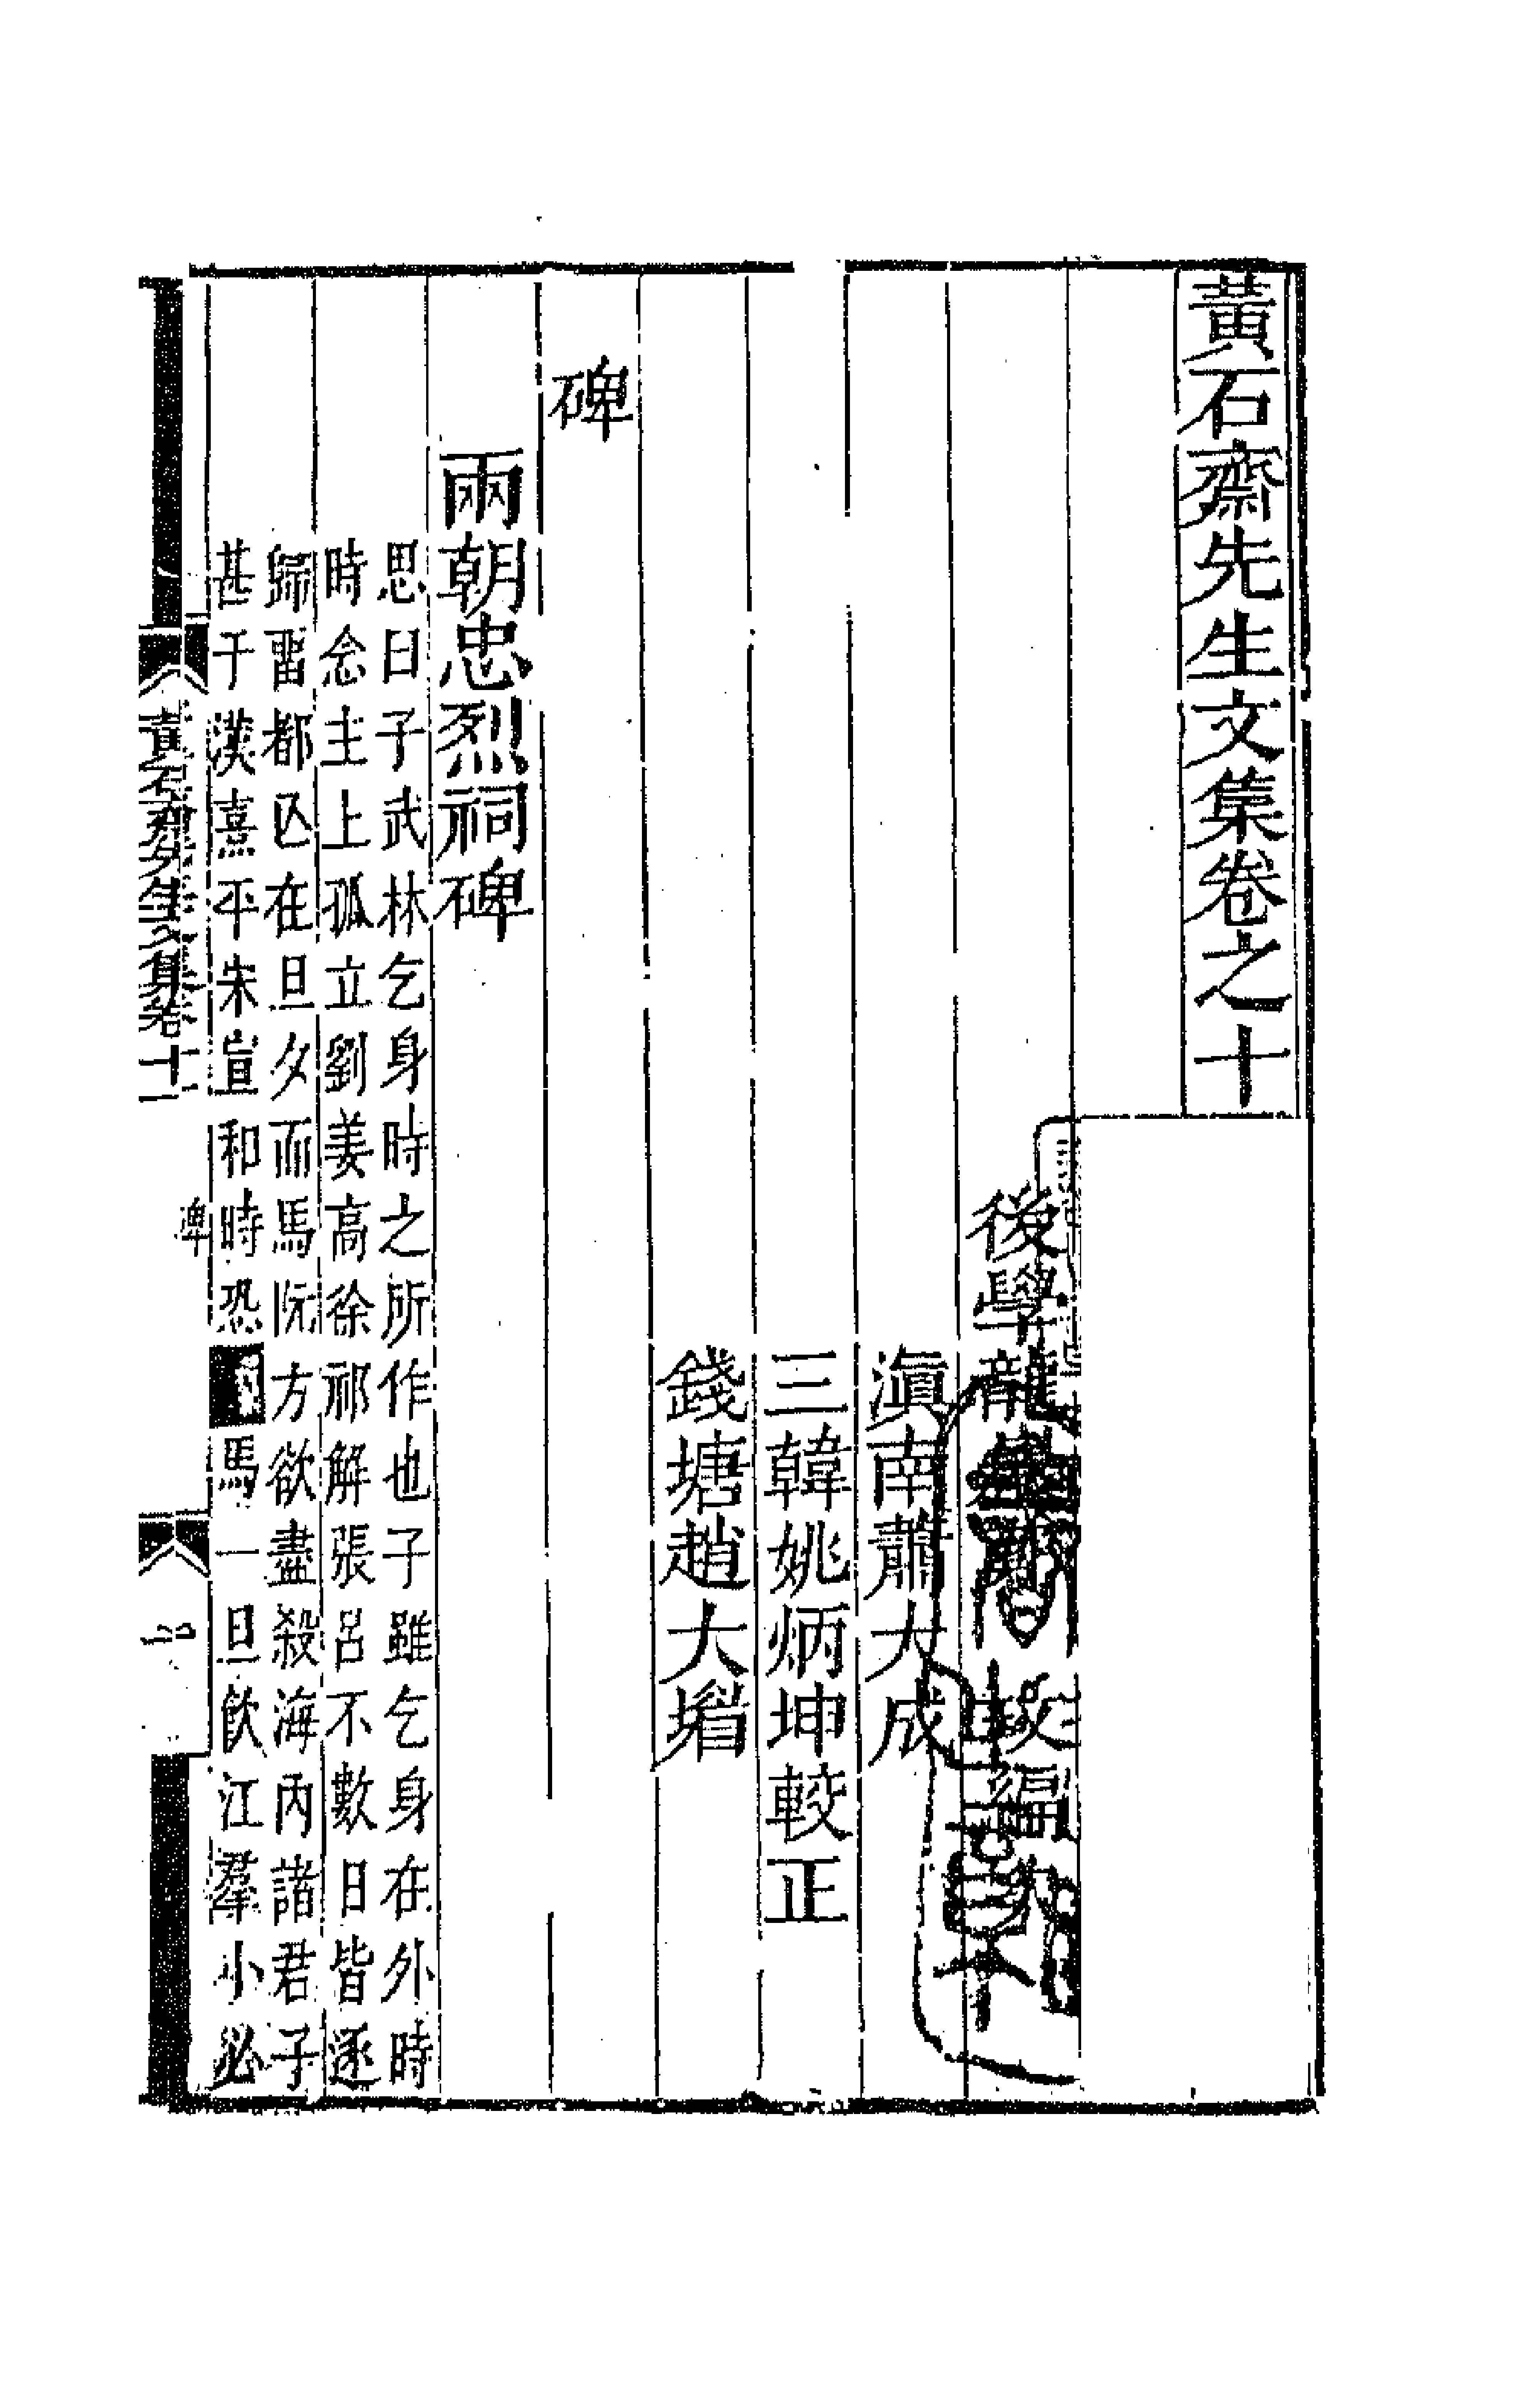 黃石齋先生文集卷之十
後學龍
編次
滇南蕭大成
三韓姚炳坤較正
錢塘趙大堦
碑
兩朝忠烈祠碑
思曰子武林乞身時之所作也子雖乞身在外時
時念主上孤立劉姜高徐祁解張呂不數日皆逐
歸畱都亾在旦夕而馬阮方欲盡殺海內諸君子
甚于漢熹平宋宣和時恐
馬一旦飲江羣小必
黃石齋先生文集卷十一
碑